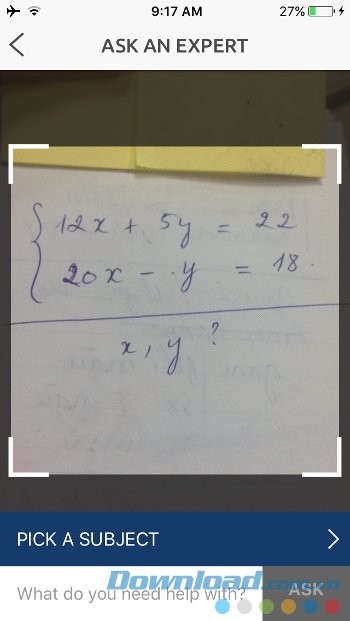 9:17 AM
27%
ASK AN EXPERT
12x + 5y = 22
20x - .y = 18.
x, y ?
PICK A SUBJECT
What do you need help with?
ASK
Download.com.vn